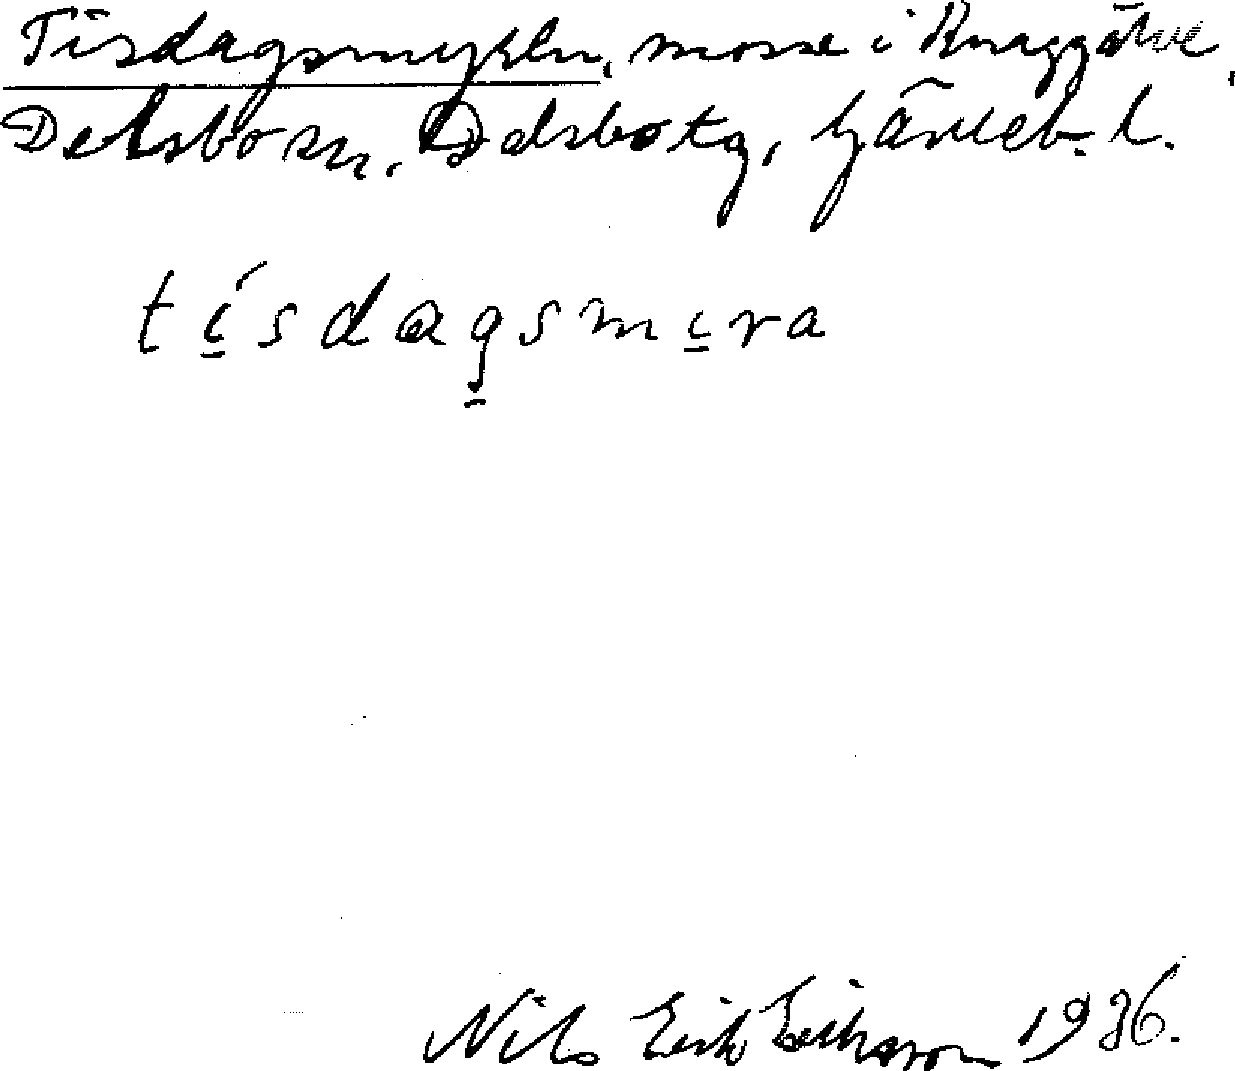 Tisdagsmyren, mosse i Knaggälve,
Delsbo sn, Delsbo tg, Gävleb. l.
tísdagsmira
Nils Erik Eriksson 1936.